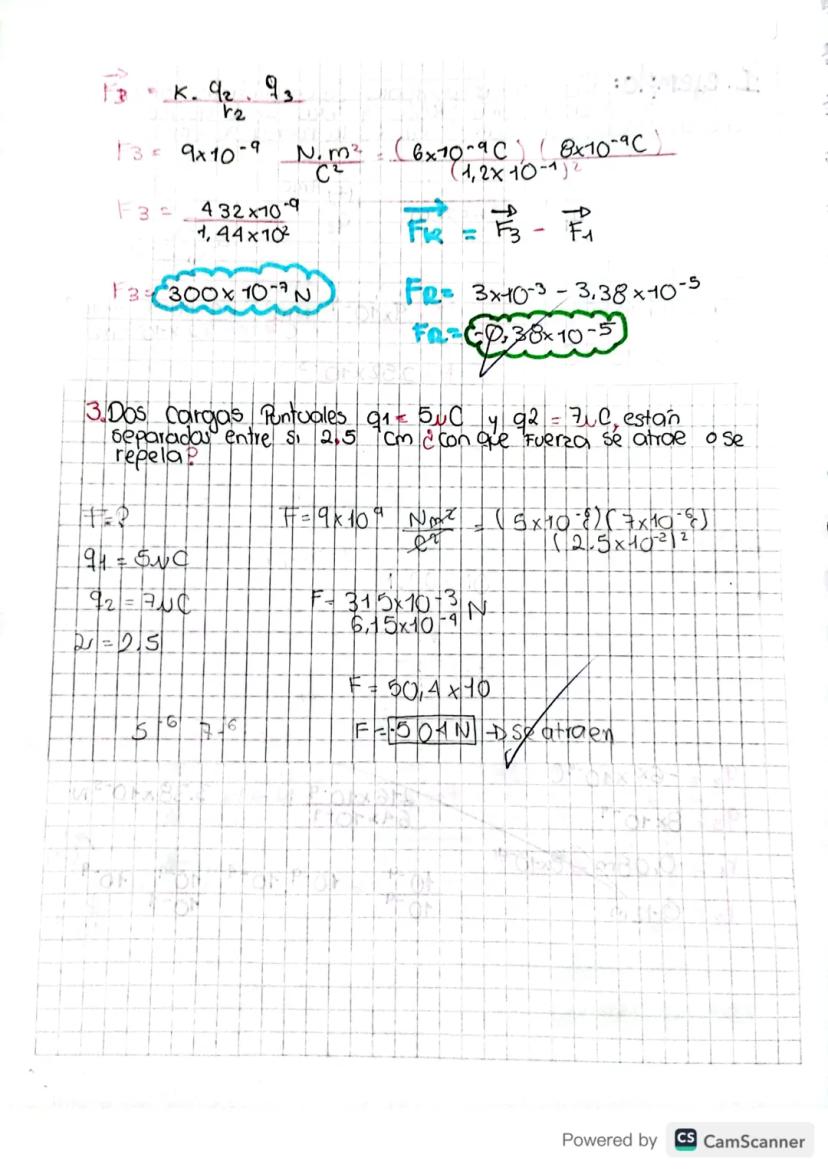 F3 = K. q2 . q3
r2
F3 = 9x10-9 N.m² = (6x10-9C) (8x10-9C)
C² (1,2x10-1)²
F3 = 432x10-9
1,44x10²
FR = F3 - F1
F3= 300x10-7N
FR= 3x10-3 - 3,38x10-5
FR= -0,38x10-5
3.Dos cargas Puntuales q1= 5uC y q2 = 7uC, están
separadas entre si 2,5 cm ¿con que Fuerza se atrae o se
repela?
F=?
F=9x10⁹ Nm² = (5x10-6)(7x10-6)
C² (2.5x10-2)²
q1 = 5uC
q2 = 7uC
F= 315x10-3 N
6,15x10-4
r = 2,5
F = 50,4x10
5-6 7-6
F = 504N → se atraen
Powered by CS CamScanner